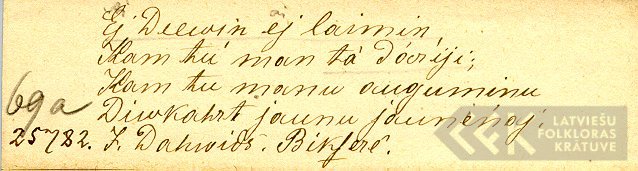 Ej Deewin ej laimin,
Kam tu man tā dárīji;
Kam tu manu auguminu
Diwkahrt jaunu
69a
25782. J. Dahwids. Bikferē.
LATVIEŠU
FOLKLORAS
KRĀTUVE